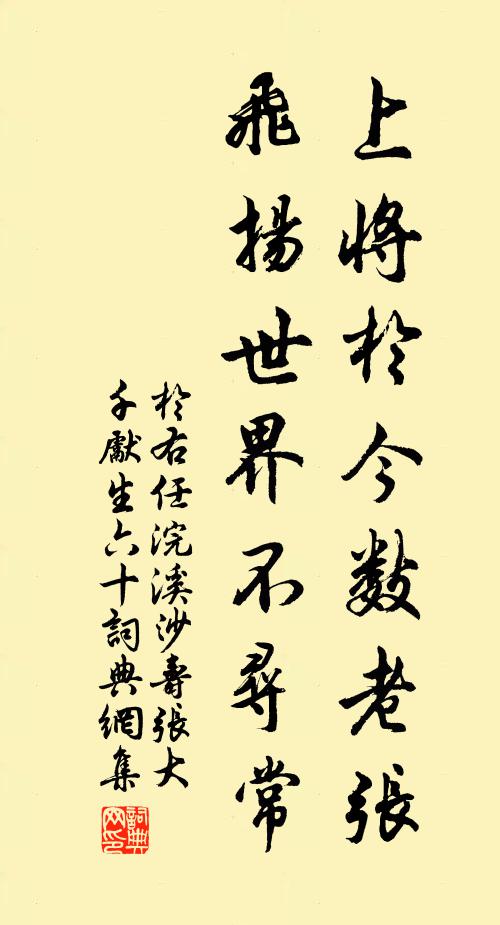 上將於今數老張
飛揚世界不尋常
於右任浣溪沙壽張大
千獻生六十詞典網集
詞典網印